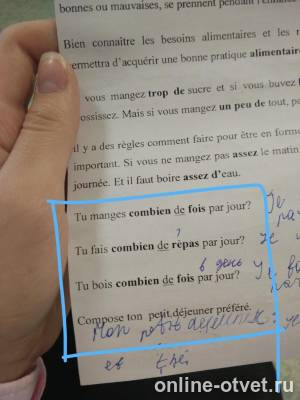 bonnes ou mauvaises, se prennent pendant l'enfance
Bien connaître les besoins alimentaires et les r
ermettra d'acquérir une bonne pratique alimentair
vous mangez trop de sucre et si vous buvez
ossissez. Mais si vous mangez un peu de tout, p
il y a des règles comment faire pour être en form
important. Si vous ne mangez pas assez le matin,
journée. Et il faut boire assez d'eau.
Tu manges combien de fois par jour? Je
?
Tu fais combien de repas par jour? Je
в день
Tu bois combien de fois par jour? Je
Compose ton petit déjeuner préféré.
Mon petit déjeuner
et thé
online-otvet.ru